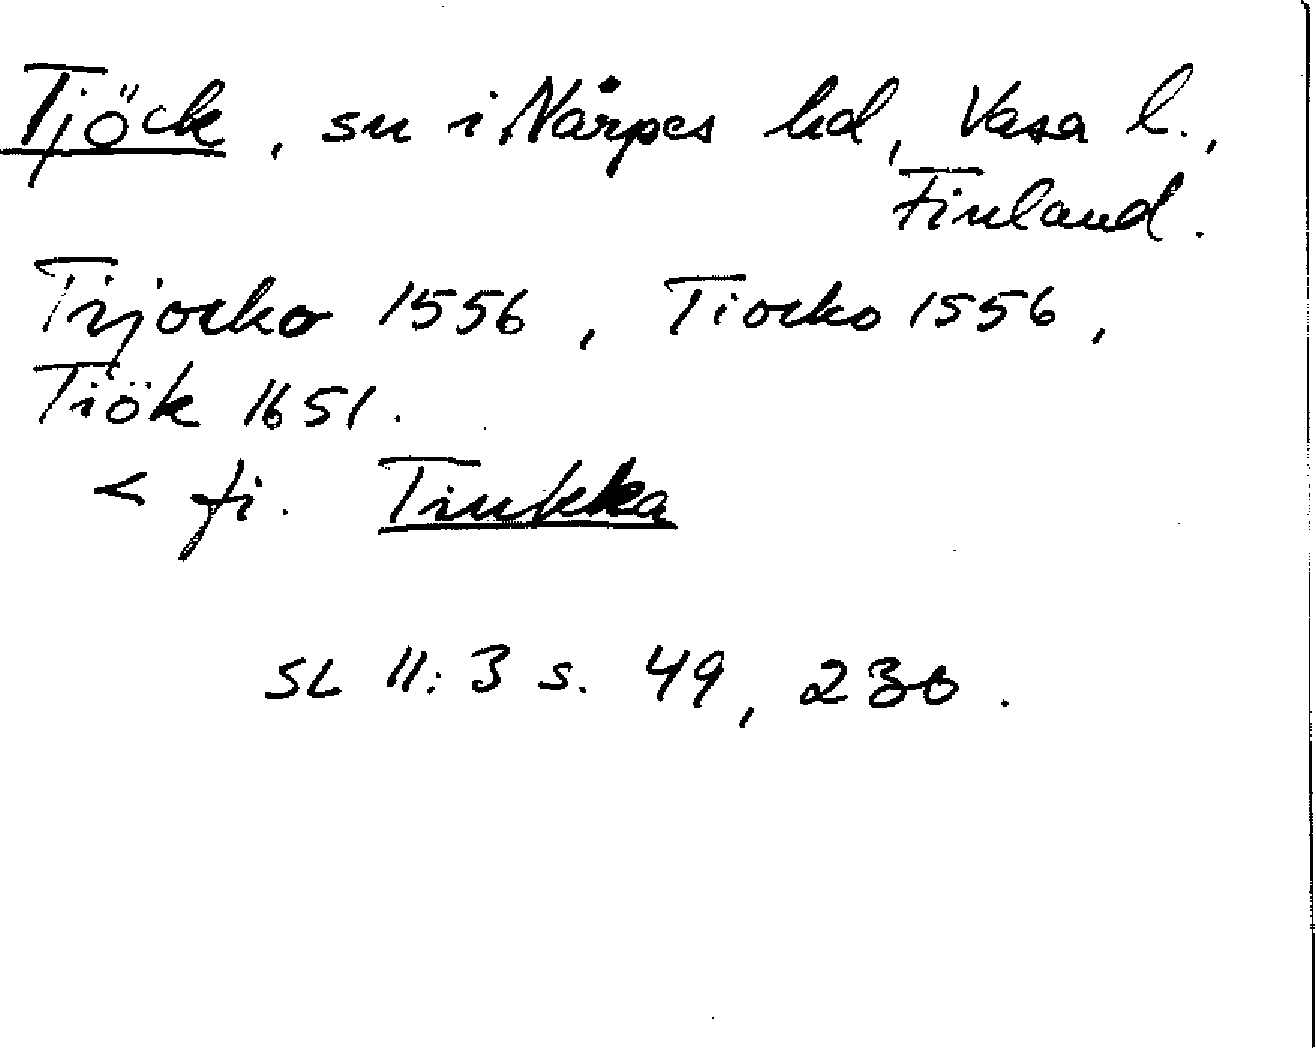 Tjöck, sn i Närpes hd, Vasa l.,
Finland.
Tijocko 1556, Tiocko 1556,
Tiök 1651.
< fi. Tiukka
SL II:3 s. 49, 230.